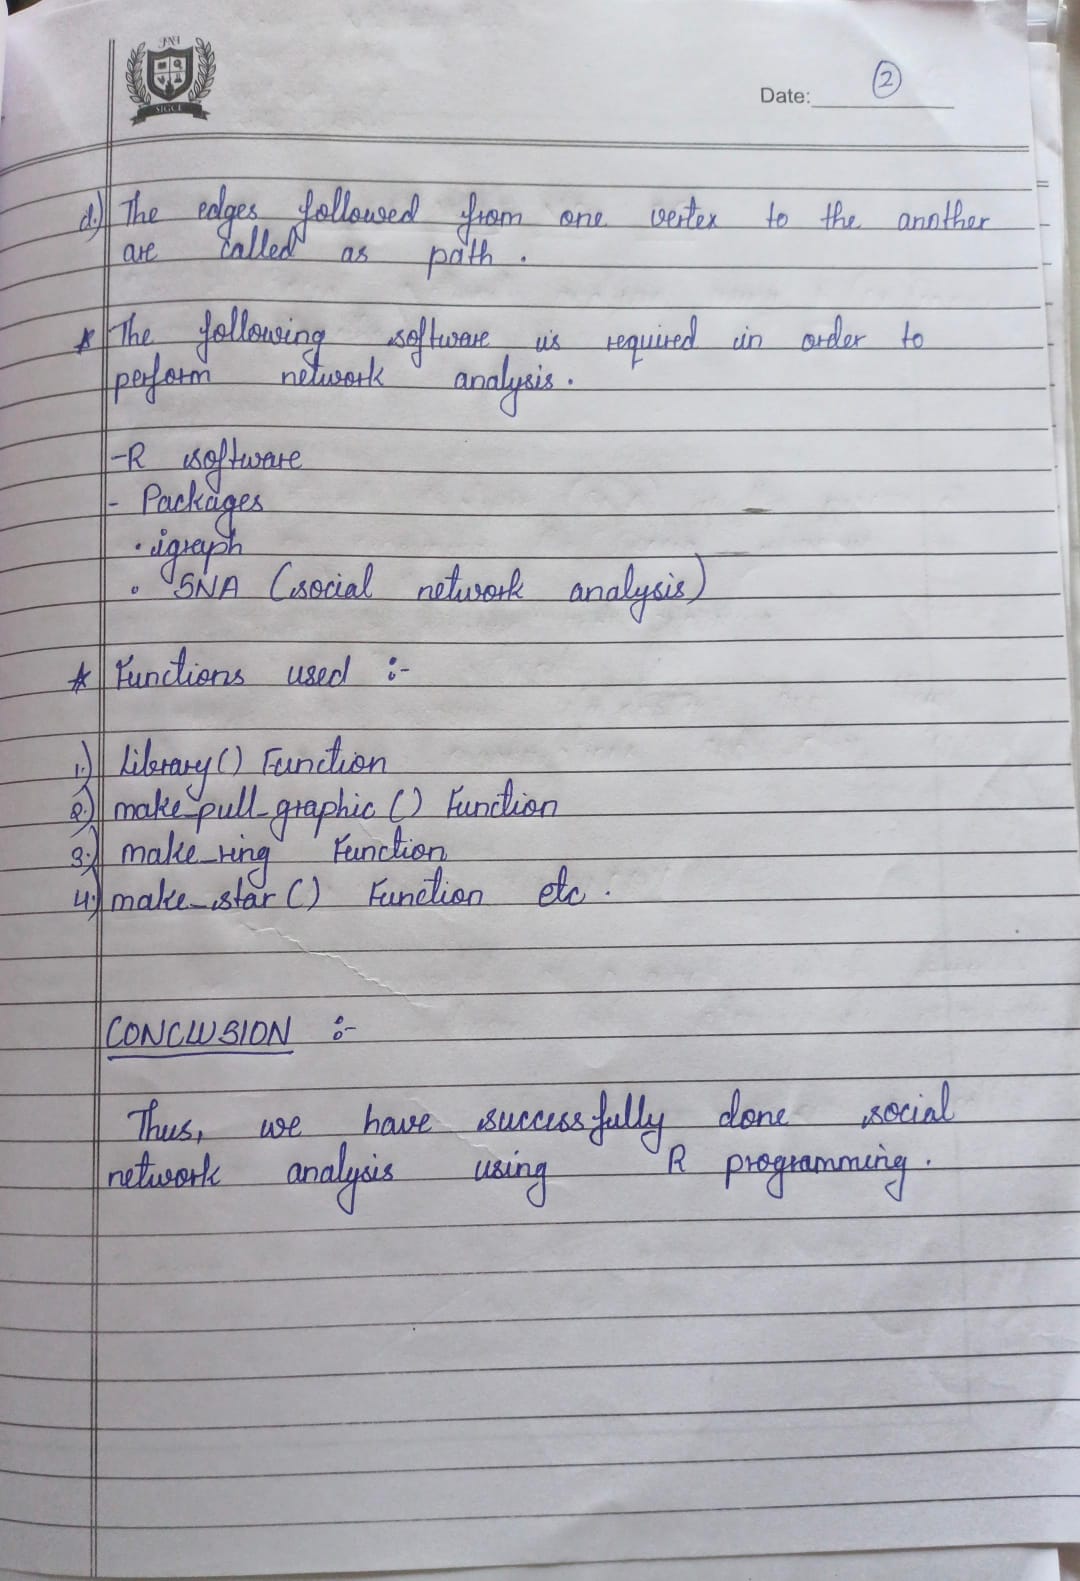 Date:
2
d.) The edges followed from one vertex to the another
are called as path.
* The following software is required in order to
perform network analysis.
-R software
- Packages
• igraph
• SNA (social network analysis)
* Functions used :-
1.) Library() Function
2.) make_pull_graphic () Function
3.) make_ring Function
4.) make_star () Function etc.
CONCLUSION :-
Thus, we have successfully done social
network analysis using R programming.